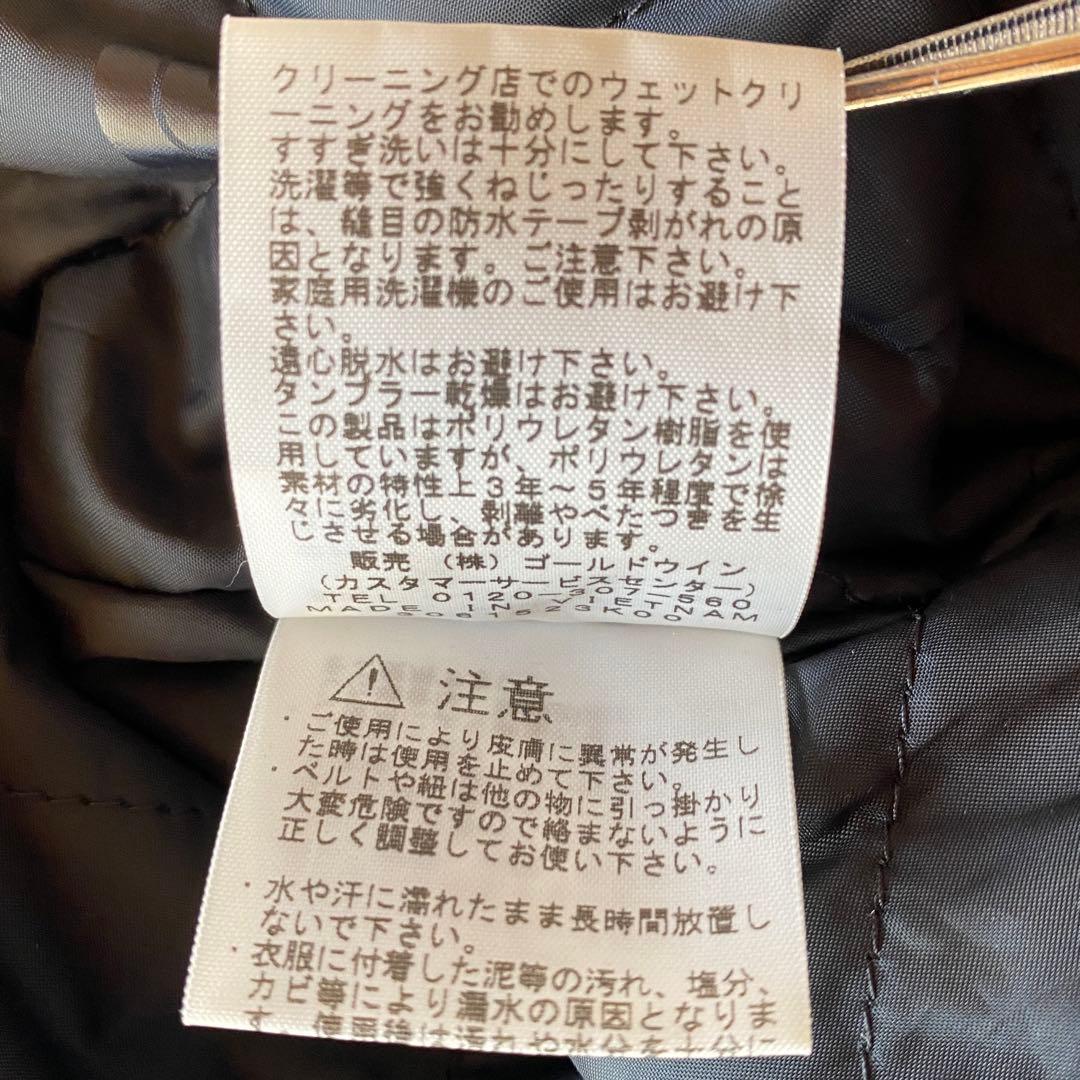 クリーニング店でのウェットクリ
ーニングをお勧めします。
すすぎ洗いは十分にして下さい。
洗濯等で強くねじったりすること
は、縫目の防水テープ剥がれの原
因となります。ご注意下さい。
家庭用洗濯機のご使用はお避け下
さい。
遠心脱水はお避け下さい。
タンブラー乾燥はお避け下さい。
この製品はポリウレタン樹脂を使
用していますが、ポリウレタンは
素材の特性上3年〜5年程度で徐
々に劣化し、剥離やべたつきを生
じさせる場合があります。
販売 (株) ゴールドウイン
(カスタマーサービスセンター)
TEL 0120-307-560
MADE IN VIETNAM
⚠注意
・ご使用により皮膚に異常が発生し
た時は使用を止めて下さい。
・ベルトや紐は他の物に引っ掛かり
大変危険ですので絡まないように
正しく調整してお使い下さい。
・水や汗に濡れたまま長時間放置し
ないで下さい。
・衣服に付着した泥等の汚れ、塩分、
カビ等により漏水の原因となりま
す。使用後は汚れや水分を十分に